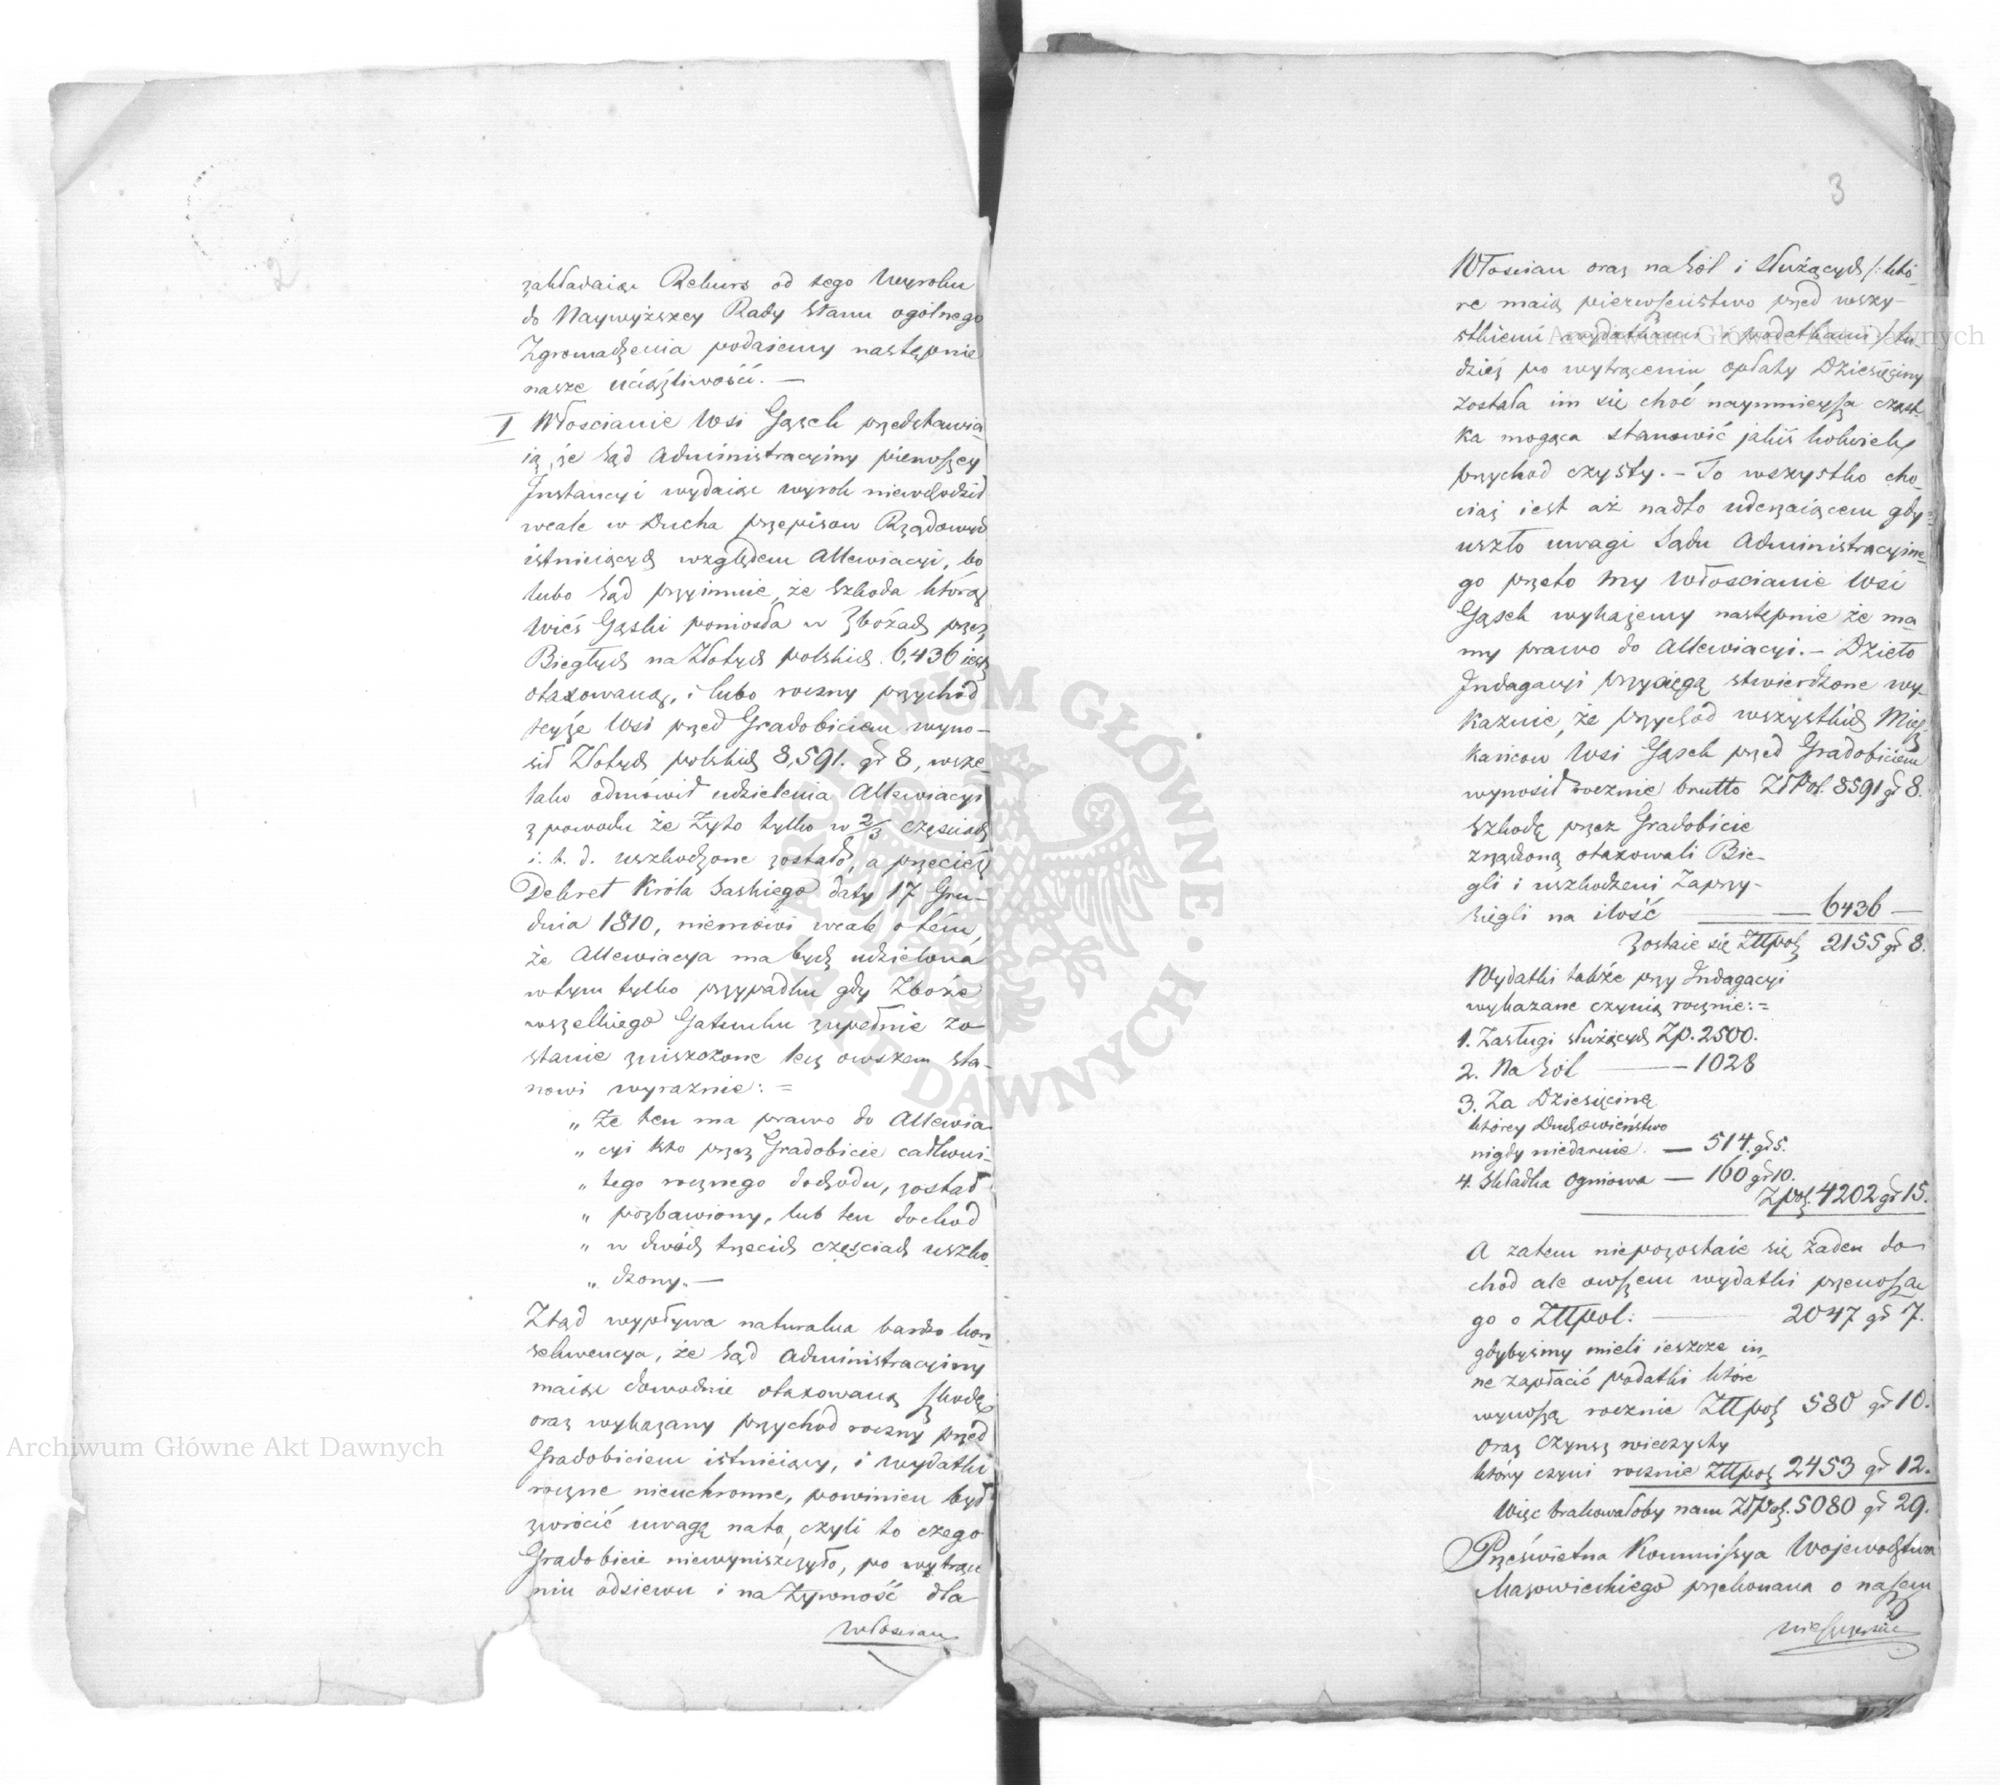 2
zakładaiąc Rekurs od tego Wyroku
do Naywyższey Rady Stanu ogólnego
Zgromadzenia podaiemy następnie
nasze uciążliwości. —
I Włoscianie Wsi Gąsek przedstawia-
ią, że Sąd Administracyiny pierwszey
Instancyi wydaiąc wyrok niewchodził
wcale w Ducha przepisow Rządowych
istnieiących względem Allewiacyi, bo
lubo Sąd przyimuie, że szkoda którą
Wieś Gąski poniosła w Zbożach przez
Biegłych na Złotych polskich 6,436 iest
otaxowaną, i lubo roczny przychód
teyże Wsi przed Gradobiciem wyno-
sił Złotych polskich 8,591. gr 8, wsze-
lako odmówił udzielenia Allewiacyi
z powodu że Żyto tylko w 2/3 częściach
i. t. d. uszkodzone zostało, a przecież
Dekret Króla Saskiego daty 17 Gru-
dnia 1810, niemówi wcale o tém,
że Allewiacya ma bydź udzielona
w tym tylko przypadku gdy Zboże
wszelkiego Gatunku zupełnie zo-
stanie zniszczone lecz owszem sta-
nowi wyraznie: =
„ Że ten ma prawo do Allewia
„ cyi kto przez Gradobicie całkowi-
„ tego rocznego dochodu, został
„ pozbawiony, lub ten dochod
„ w dwóch trzecich częściach uszko-
„ dzony. —
Ztąd wypływa naturalna bardzo kon-
sekwencya, że Sąd Administracyiny
maiąc dowodnie otaxowaną szkodę
oraz wykazany przychód roczny przed
Gradobiciem istnieiący, i wydatki
roczne nieuchronne, powinien był
zwrócić uwagę na to, czyli to czego
Gradobicie niewyniszczyło, po wytrące
niu odsiewu i na żywność dla
Włoscian
3
Włoscian oraz na Sól i służących /: któ-
re maią pierwszeństwo przed wszy-
stkiemi wydatkami i podatkami :/ tu-
dzież po wytrąceniu opłaty Dziesięciny
została im się choć naymnieysza cząst-
ka mogąca stanowić jakiś kolwiek
przychod czysty. — To wszystko cho-
ciaż iest aż nadto uderzaiącem gdy
uszło uwagi Sądu Administracyine-
go przeto My Włoscianie Wsi
Gąsek wykażemy następnie że ma-
my prawo do Allewiacyi. — Dzieło
Indagacyi przysięgą stwierdzone wy-
kazuie, że przychod wszystkich Miesz
kańcow Wsi Gąsek przed Gradobiciem
wynosił rocznie brutto ZłPol. 8591 gr 8.
Szkodę przez Gradobicie
zrządzoną otaxowali Bie-
gli i uszkodzeni Zaprzy-
sięgli na ilość — 6436 —
Zostaie się Złłpol. 2155 gr 8.
Wydatki także przy Indagacyi
wykazane czynią rocznie: =
1. Zasługi służących Zp. 2500.
2. Na Sól — 1028
3. Za Dziesięcinę
którey Duchowieństwo
nigdy niedaruie. — 514. gr 5.
4. Składka Ogniowa — 160 gr 10.
Zpol. 4202 gr 15.
A zatem niepozostaie się żaden do-
chód ale owszem wydatki przenoszą
go o Złłpol: — 2047 gr 7.
gdybyśmy mieli ieszcze in-
ne zapłacić podatki które
wynoszą rocznie Złłpol. 580 gr 10.
oraz Czynsz wieczysty
który czyni rocznie Złłpol. 2453 gr 12.
Więc brakowałoby nam ZłPol. 5080 gr 29.
Prześwietna Kommissya Wojewodztwa
Mazowieckiego przekonana o naszem
nieszczęściu